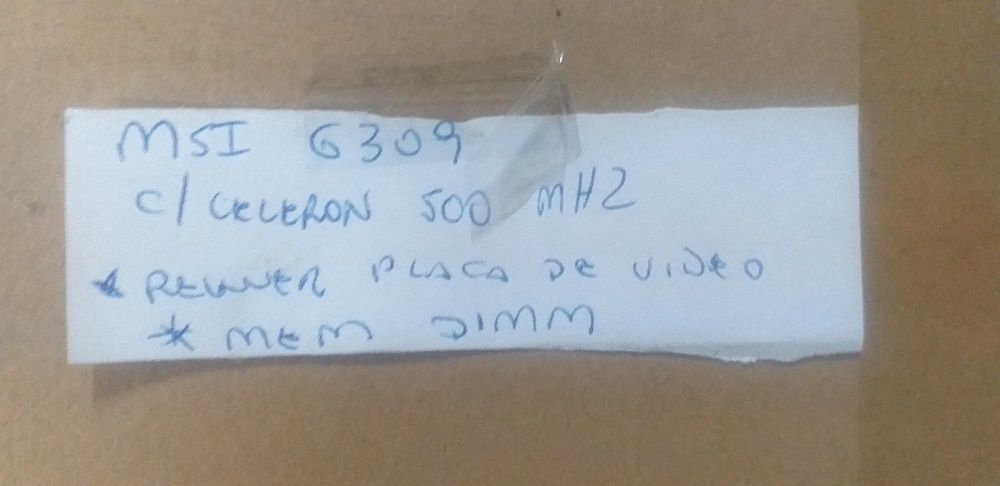 MSI 6309
C/ CELERON 500 MHZ
* REQUER PLACA DE VIDEO
* MEM DIMM